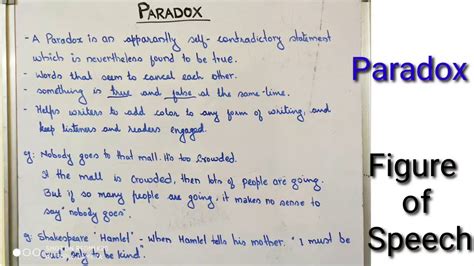 PARADOX
- A Paradox is an apparantly self-contradictory statement
which is nevertheless found to be true.
- Words that seem to cancel each other.
- something is true and false at the same time.
- Helps writers to add color to any form of writing, and
keep listeners and readers engaged.
eg: Nobody goes to that mall. It's too crowded.
If the mall is crowded, then lots of people are going.
But if so many people are going, it makes no sense to
say "nobody goes".
eg: Shakespeare "Hamlet" - when Hamlet tells his mother. "I must be
Cruel only to be kind".
Paradox
Figure
of
Speech